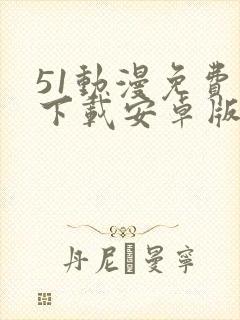 51動漫免費
下載安卓版
丹尼·曼寧